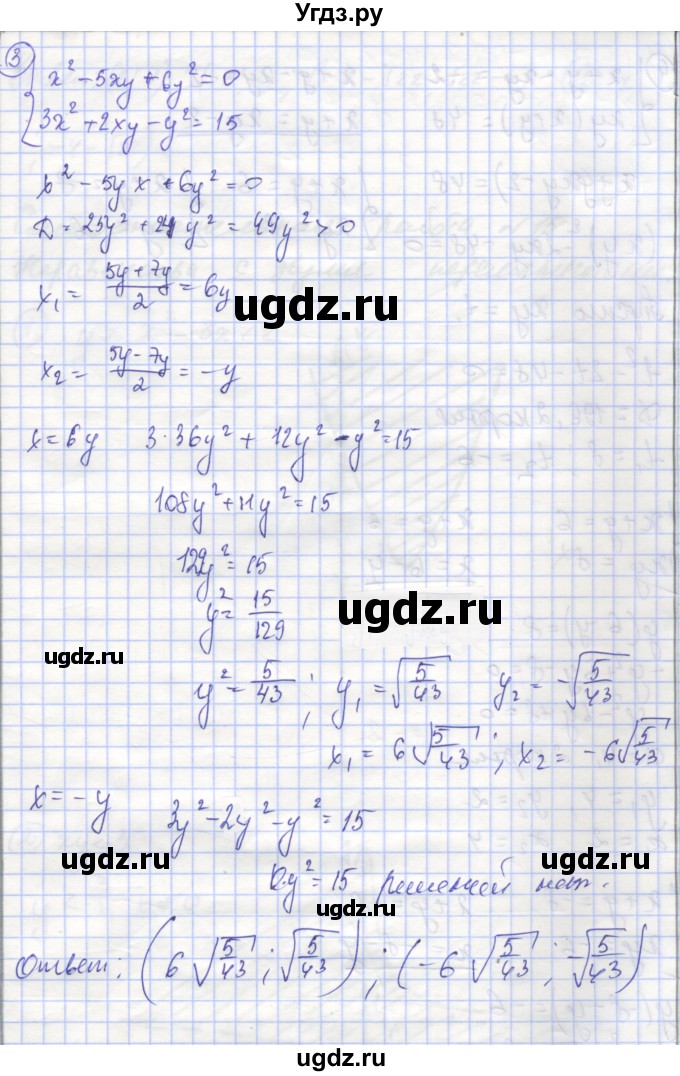 Угдз.ру
3
x² - 5xy + 6y² = 0
3x² + 2xy - y² = 15
x² - 5yx + 6y² = 0
D = 25y² + 24y² = 49y² > 0
x₁ = (5y + 7y)/2 = 6y
ugdz.ru
x₂ = (5y - 7y)/2 = -y
x = 6y 3·36y² + 12y² - y² = 15
108y² + 11y² = 15
129y² = 15
y² = 15/129
ugdz.ru
ugdz.ru
y² = 5/43 ; y₁ = √(5/43) y₂ = -√(5/43)
x₁ = 6√(5/43) ; x₂ = -6√(5/43)
x = -y 3y² - 2y² - y² = 15
ugdz.ru
ugdz.ru
0·y² = 15 решений нет.
ugdz.ru
Ответ: (6√(5/43) ; √(5/43)) ; (-6√(5/43) ; -√(5/43))
ugdz.ru